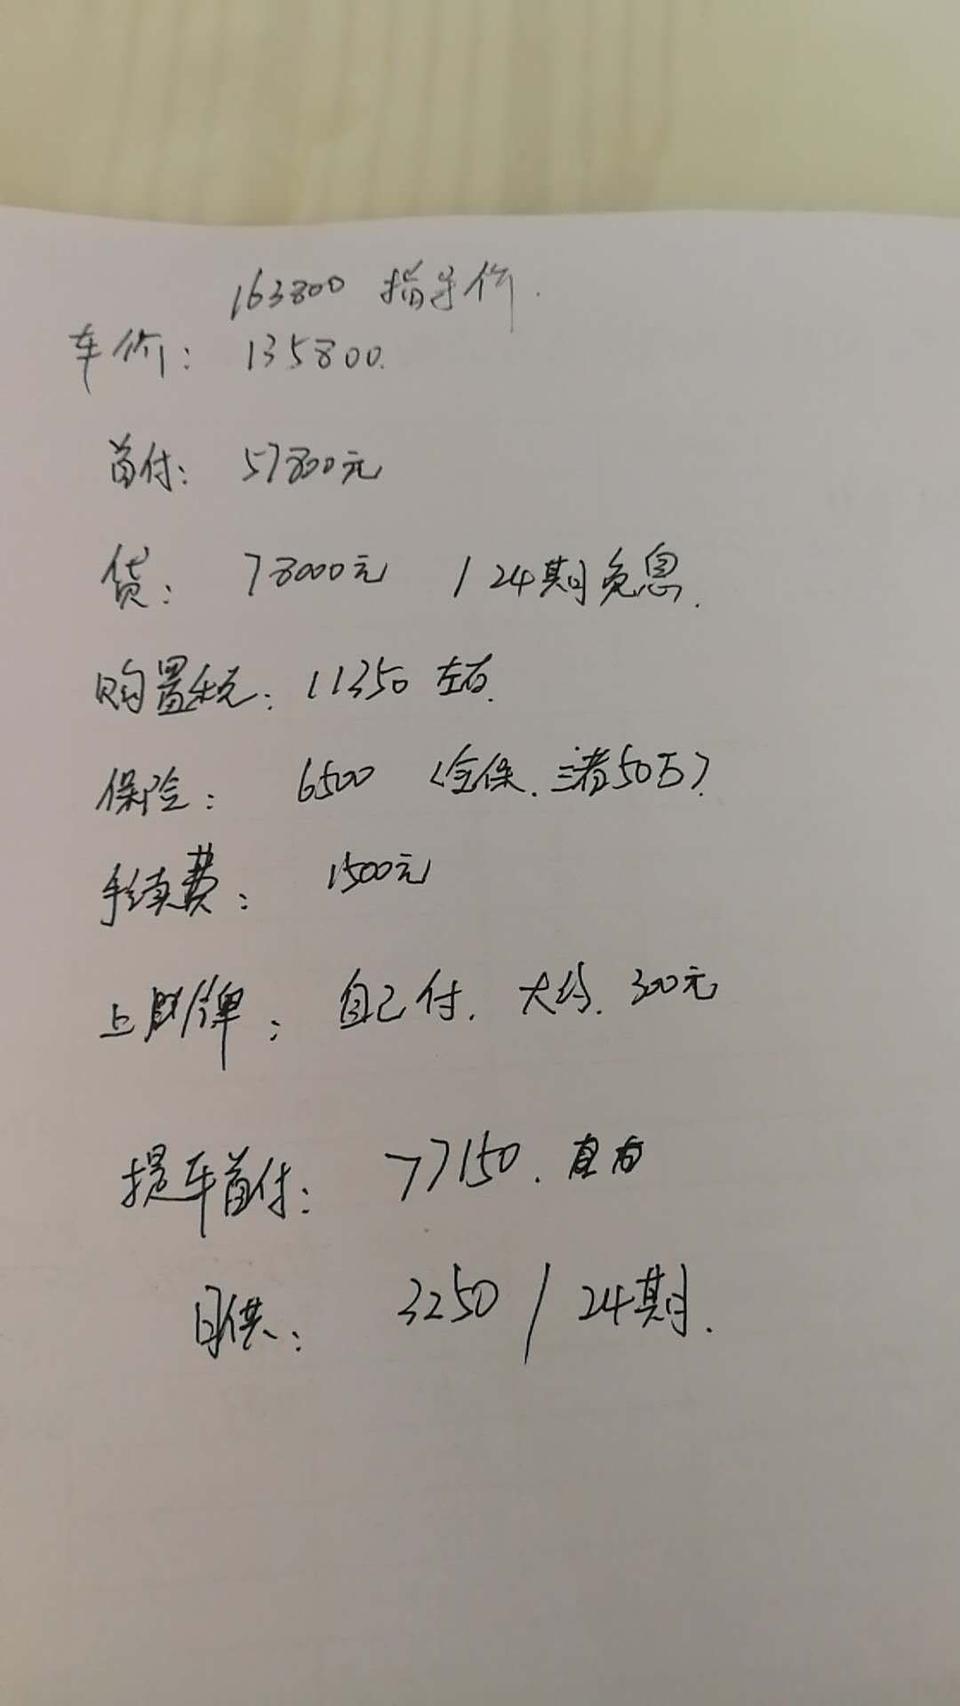 163800 指导价.
车价: 135800.
首付: 57800元
贷: 78000元 / 24期免息.
购置税: 11350 左右.
保险: 6500 (全保. 三者50万).
手续费: 1500元
上牌: 自己付. 大约. 300元
提车首付: 77150. 左右
月供: 3250 / 24期.